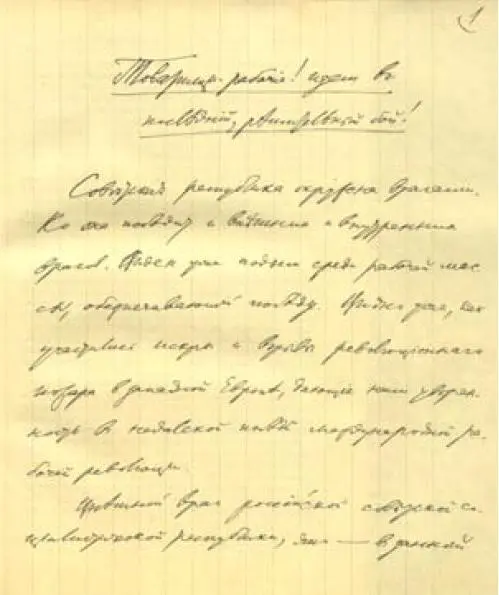 1
Товарищи-рабочіе! идем в
послѣдній, рѣшительный бой!
Совѣтская республика окружена врагами.
Но она побѣдит и внѣшних и внутренних
врагов. Виден уже подъем среди рабочей мас-
сы, обезпечивающий побѣду. Видно уже, как
участились искры и взрывы революціоннаго
пожара в западной Европѣ, дающіе нам уверен-
ность в недалекой побѣдѣ международной ра-
бочей революціи.
Внѣшній враг россійской совѣтской со-
циалистической республики, это — в данный